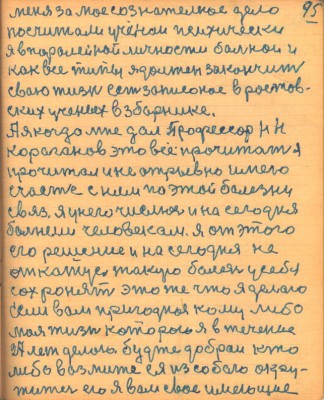 95
меня за мое сознателное дело
посчитали учёной психически
я в параноейной личности болной и
как все типы я должен закончит
свою жизн есть записоное в ростов-
ских ученых в зборнике.
А я когда мне дал Профессор Н Н
Кораганов это всё прочитат я
прочитал и не отрывно имею
счасте с ним по этой болезни
связ. я у него числюс и на сегодня
болним человекам. я от этого
его решение и на сегодня не
откажус такую болез у себя
сохронят это же что я делаю
если вам пригодная кому либо
моя жизн которою я в течение
лет делаю. будте добраи кто
либо возмите ея из собого окру-
жите его я вам свое имеющие